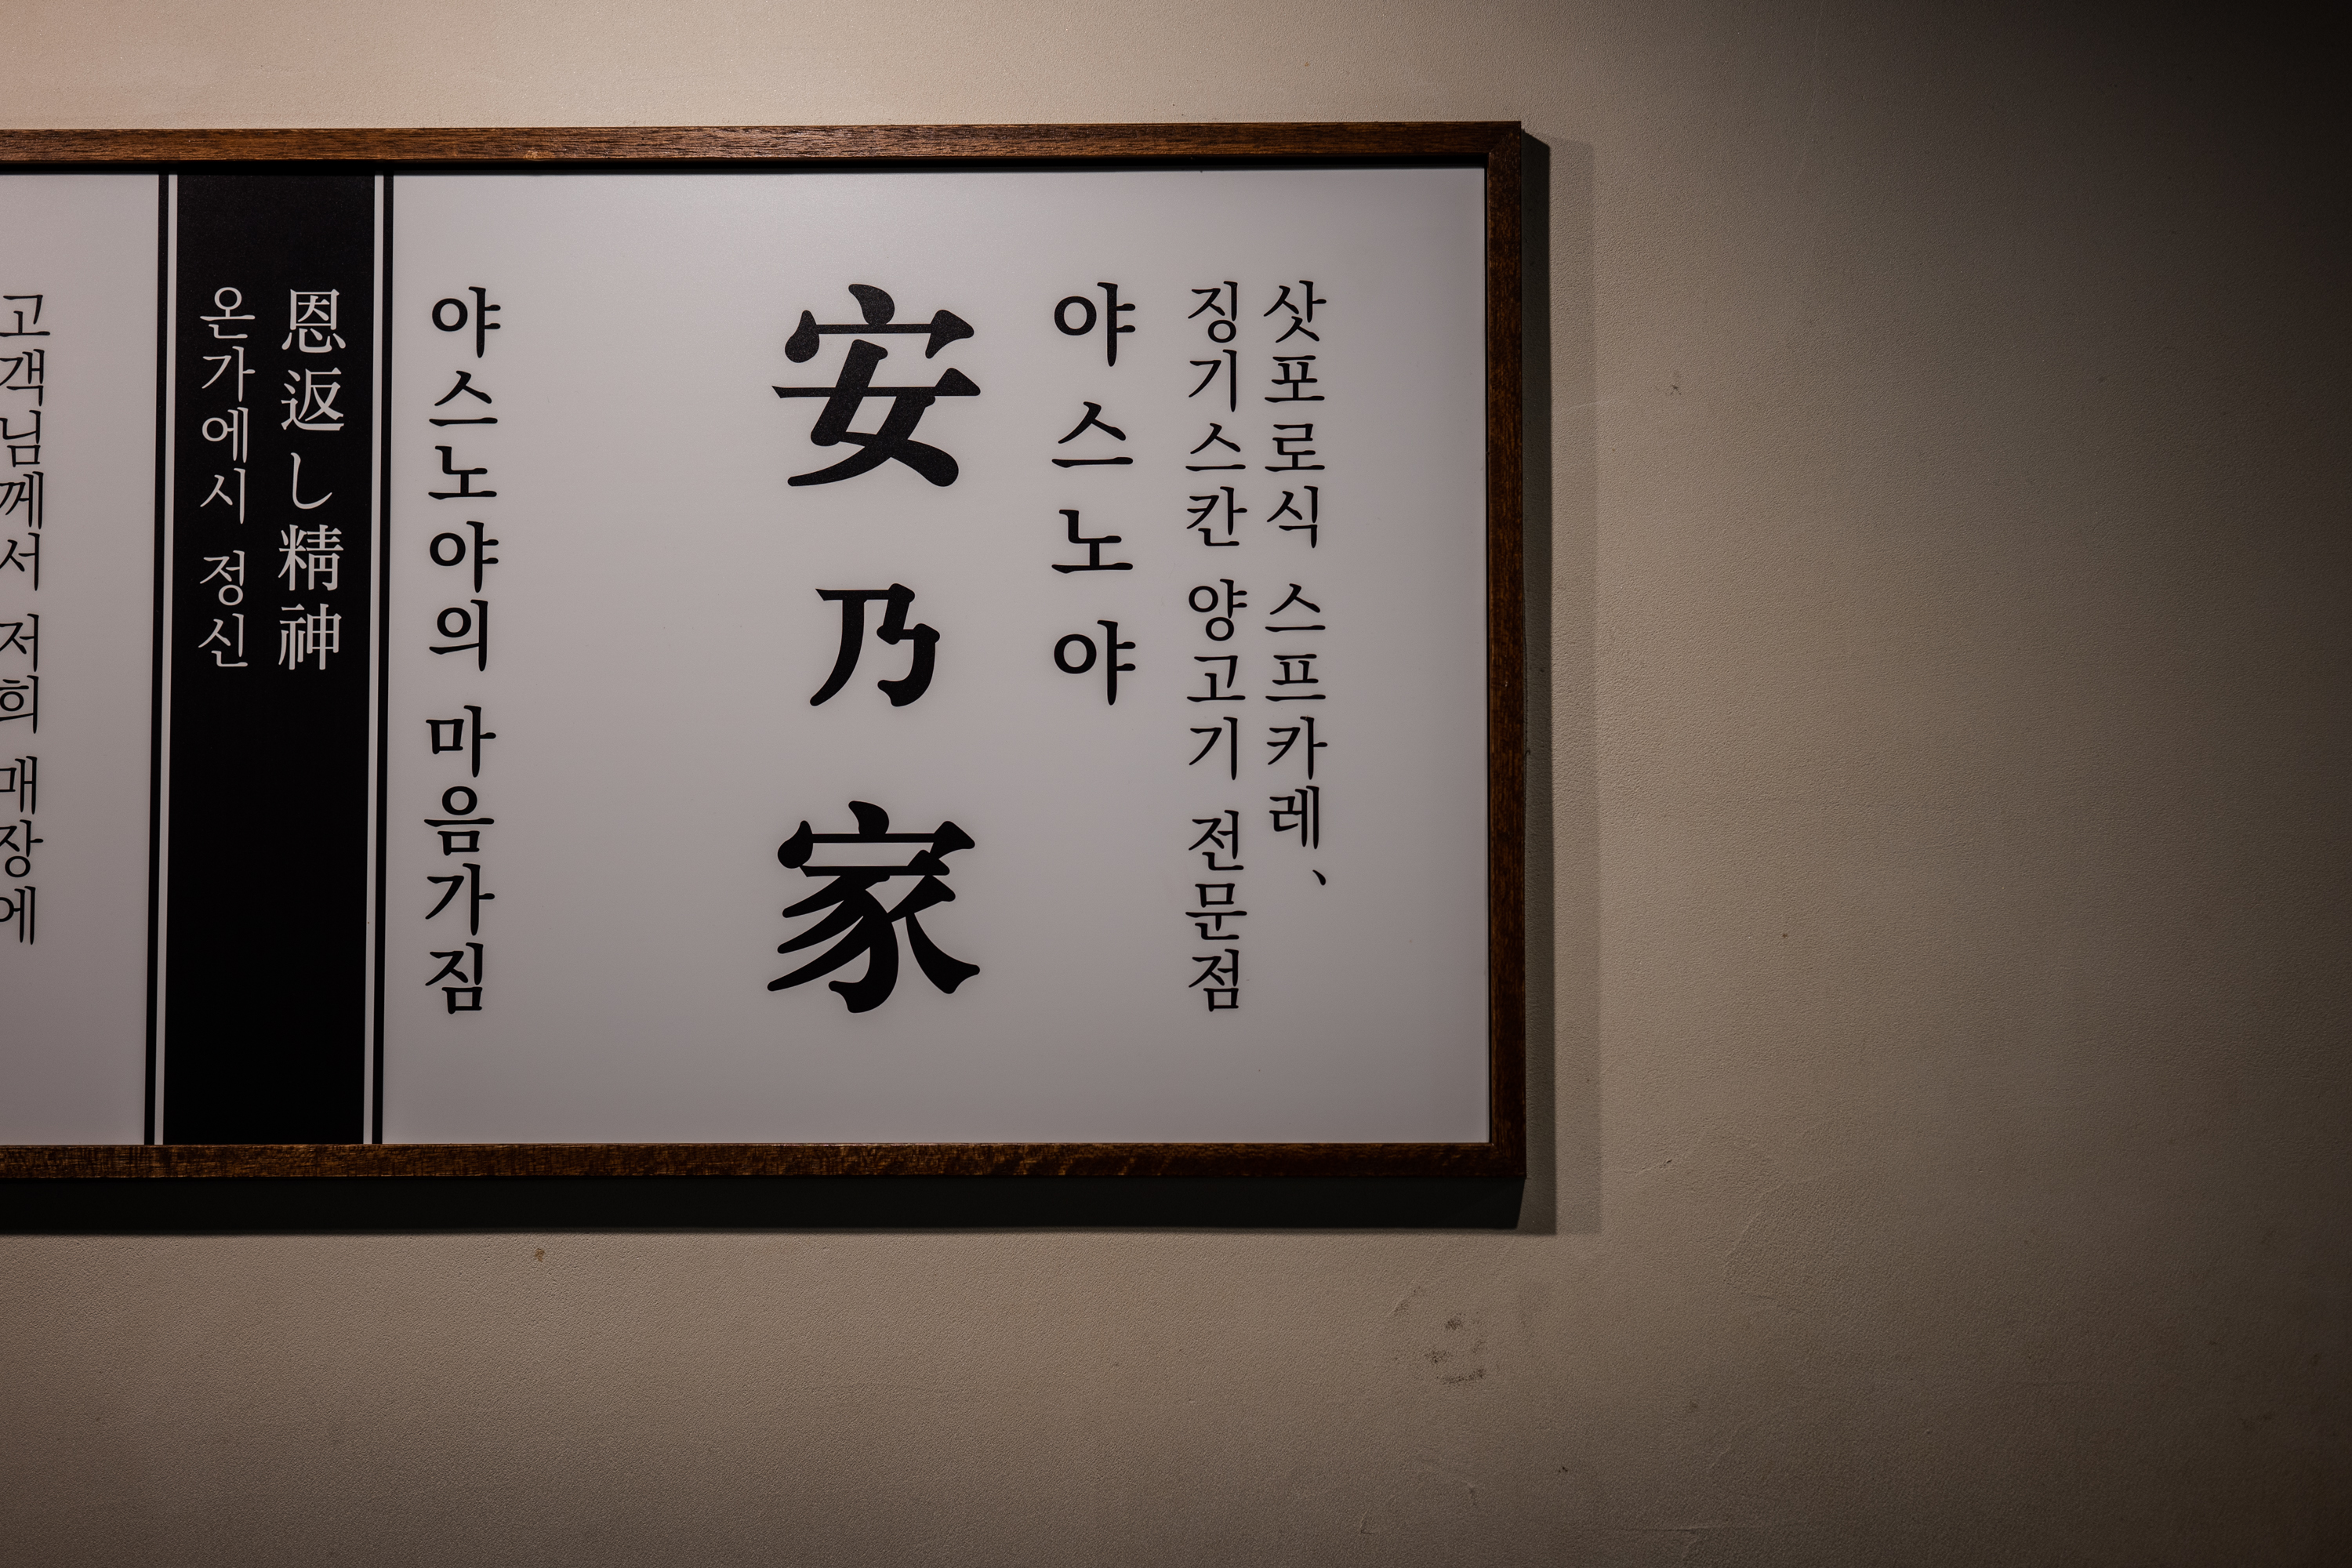 삿포로식 스프카레、
징기스칸 양고기 전문점
야스노야
安乃家
야스노야의 마음가짐
恩返し精神
온가에시 정신
고객님께서 저희 매장에